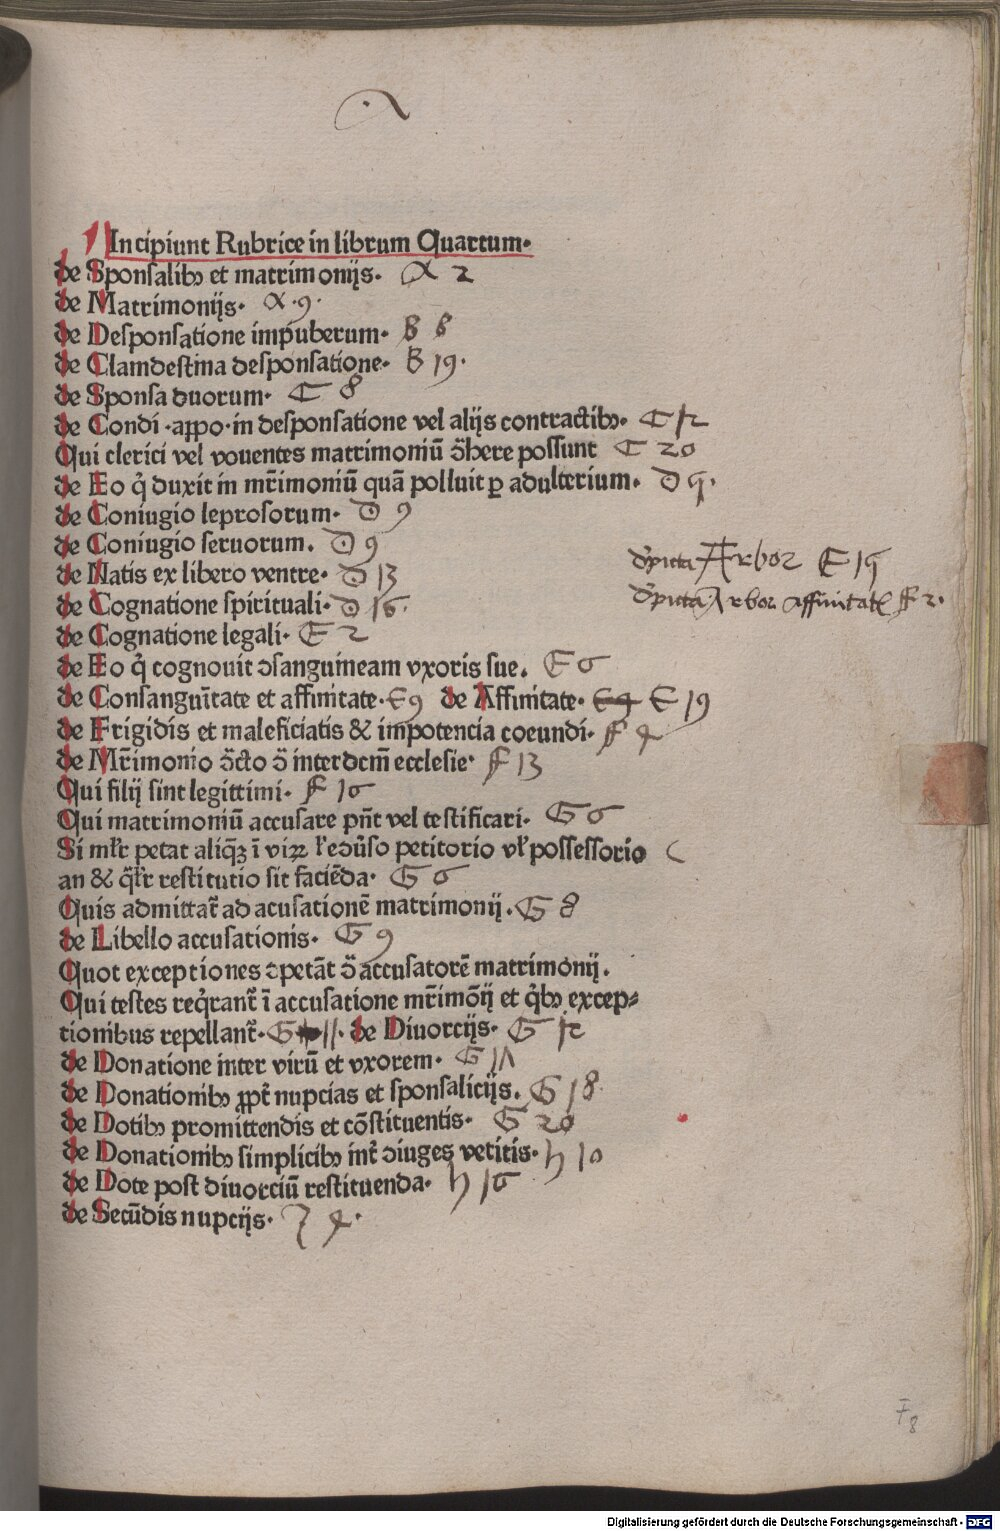 A
Incipiunt Rubrice in librum Quartum.
de Sponsalibꝫ et matrimonijs. A 2
de Matrimonijs. A .9.
de Desponsatione impuberum. B 8
de Clamdestina desponsatione. B 19.
de Sponsa duorum. C 8
de Condi .appo. in desponsatione vel alijs contractibꝫ. C 12
Qui clerici vel vouentes matrimoniū ꝯ̄here possunt C 20
de Eo q̇ duxit in mr̄imoniū quā polluit ꝑ adulterium. D 4.
de Coniugio leprosorum. D 9
de Coniugio seruorum. D 9
de Natis ex libero ventre. D 13
de Cognatione spirituali. D 16.
de Cognatione legali. E 2
de Eo q̇ cognouit ꝯsanguineam vxoris sue. E 6
de Consanguītate et affinitate. E 9 de Affinitate. E 19
de Frigidis et maleficiatis & impotencia coeundi. F 4
de Mr̄imonio ꝯ̄cto ꝯ̄ interdcm̄ ecclesie. F 13
Qui filij sint legittimi. F 16
Qui matrimoniū accusare pn̄t vel testificari. G 6
Si mlr̄ petat aliq̄ꝫ ī viꝝ petitorio vl̄ possessorio
an & q̄lr̄ restitutio sit faciēda. G 6
Quis admittat̄ ad acusationē matrimonij. G 8
de Libello accusationis. G 9
Quot exceptiones ꝯpetāt ꝯ̄ accusatorē matrimonij.
Qui testes req̇rant̄ ī accusatione mr̄imōij et q̇bꝫ excep-
tionibus repellant̄. G 11. de Diuorcijs. G 12
de Donatione inter virū et vxorem. G 17
de Donationibꝫ ꝓpt̄ nupcias et sponsalicijs. G 18.
de Dotibꝫ promittendis et cōstituentis. G 20
de Donationibꝫ simplicibꝫ int̄ ꝯiuges vetitis. h 10
de Dote post diuorciū restituenda. h 16
de Secūdis nupcijs. J 4.
Arbor E 19
Arbor affinitatꝭ F 2.
F 8
Digitalisierung gefördert durch die Deutsche Forschungsgemeinschaft - DFG